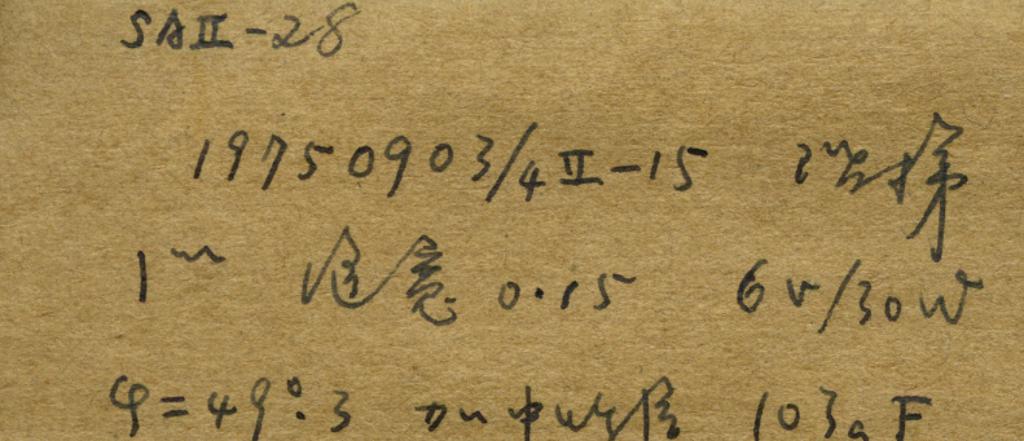 SAⅡ-28
19750903/4Ⅱ-15
1ᵐ 0.15 6v/30W
φ=49°.3 加中 103aF